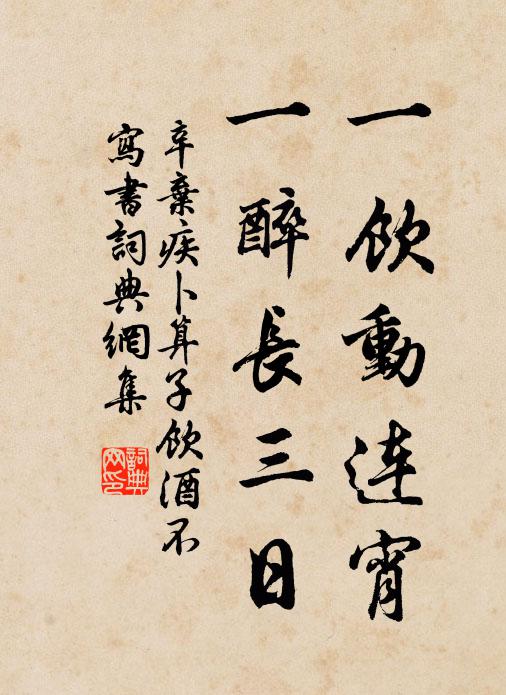 一飲動連宵
一醉長三日
辛棄疾卜算子飲酒不
寫書詞典網集
詞典网印